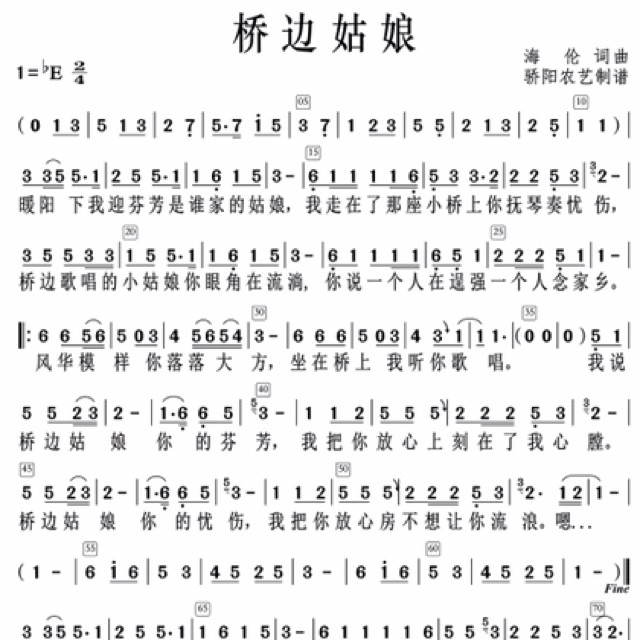 桥边姑娘
海 伦 词曲
1=♭E 2/4
骄阳农艺制谱
05 10
(0 1 3 | 5 1 3 | 2 7 | 5·7 i 5 | 3 7 | 1 2 3 | 5 5 | 2 1 3 | 2 5 | 1 1)
15
3 3 5 5·1 | 2 5 5·1 | 1 6 1 5 | 3- | 6 1 1 1 1 6 | 5 3 3·2 | 2 2 5 3 5 | 3 2-
暖阳 下我迎芬芳是谁家的姑娘,我走在了那座小桥上你抚琴奏忧伤,
20 25
3 5 5 3 3 | 1 5 5·1 | 1 6 1 5 | 3- | 6 1 1 1 | 6 5 3 | 2 2 2 5 1 | 1-
桥边歌唱的小姑娘你眼角在流淌, 你说一个人在逞强一个人念家乡。
30 35
6 6 5 6 | 5 0 3 | 4 5 6 5 4 | 3- | 6 6 5 6 | 5 0 3 | 4 3 1 | 1 1· | (0 0 | 0 0) | 5 1
风华模 样 你落落大 方,坐在桥上 我听你歌 唱。 我说
40
5 5 2 3 | 2- | 1·6 6 5 | 5 3- | 1 1 2 | 5 5 5 | 6 2 2 2 5 3 | 5 1
桥边姑 娘 你 的芬 芳,我把你放心上刻在了我心 膛。
45 50
5 5 2 3 | 2- | 1·6 6 5 | 5 3- | 1 1 2 | 3 5 5 | 2 2 2 5 3 | 3 2· 1 2 | 1-
桥边姑 娘 你 的忧 伤,我把你放心房不想让你流 浪。嗯...
55 60
(1 - | 6 i 6 | 5 3 5 | 4 2 5 | 3- | 6 i 6 | 5 3 | 4 5 2 5 | 1-)
Fine
65 70